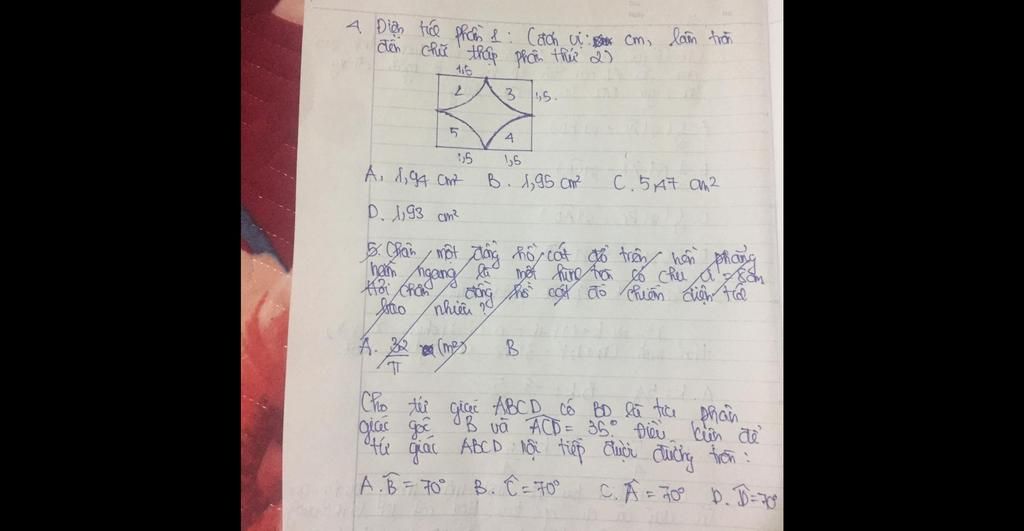 4. Diện tích phần 1: (đơn vị: cm, làm tròn
đến chữ thập phân thứ 2)
1,5
2 3 1,5.
5 4
1,5 1,5
A. 1,94 cm² B. 1,95 cm² C. 5,47 cm²
D. 1,93 cm²
5. Chân một đống hồ cát đổ trên nền phẳng
nằm ngang là một hình tròn có chu vi = 8cm
Hỏi chân đống hồ cát đó chiếm diện tích
bao nhiêu?
A. 32/π (m²) B
Cho tứ giác ABCD có BD là tia phân
giác góc B và ACD = 35°. Điều kiện để
tứ giác ABCD nội tiếp được đường tròn:
A. B̂ = 70° B. Ĉ = 70° C. Â = 70° D. D̂ = 70°